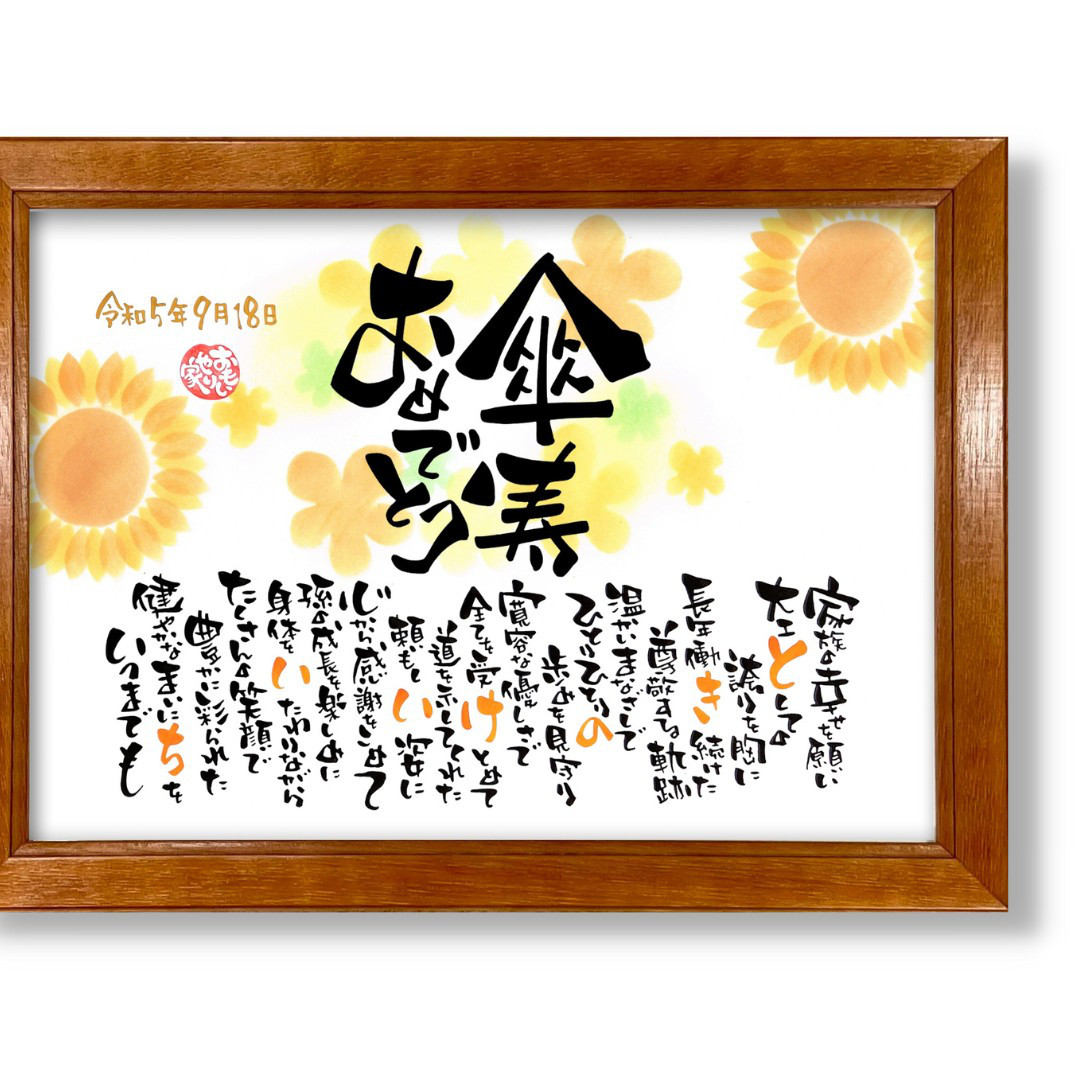 傘寿
おめでとう
家族の幸せを願い
大工としての
誇りを胸に
長年働き続けた
尊敬する軌跡
温かいまなざしで
ひとりひとりの
歩みを見守り
寛容な優しさで
全てを受けとめて
道を示してくれた
頼もしい姿に
心から感謝をこめて
孫の成長を楽しみに
身体をいたわりながら
たくさんの笑顔で
豊かに彩られた
健やかなまいにちを
いつまでも
令和5年9月18日